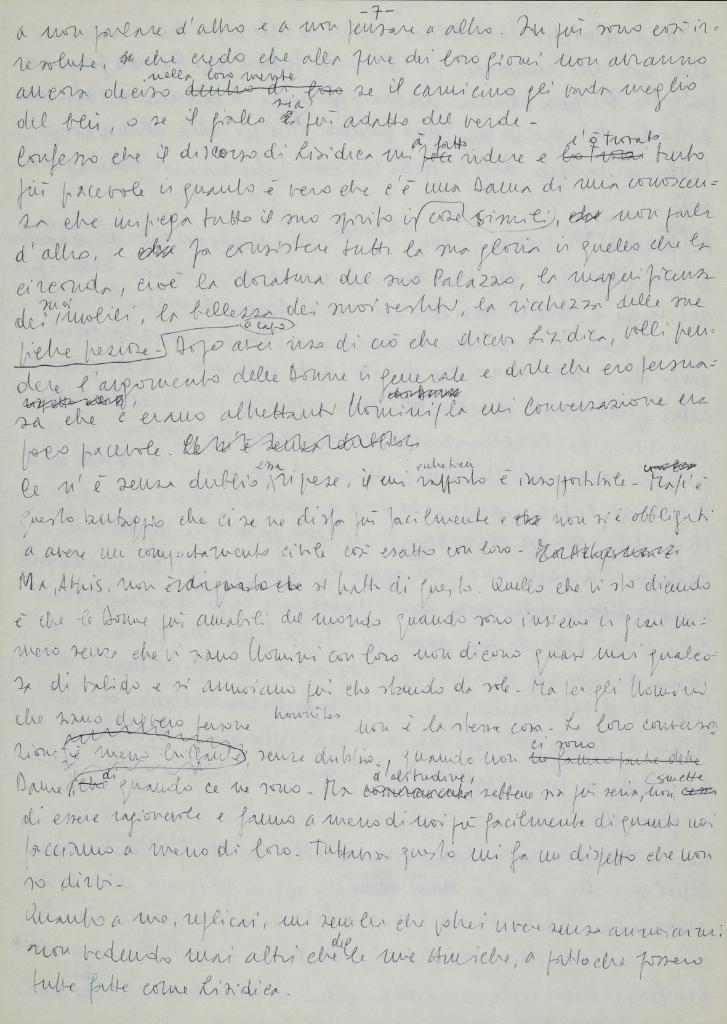 -7-
a non parlare d'altro e a non pensare a altro. In più sono così ir=
resolute, che credo che alla fine dei loro giorni non avranno
ancora deciso nella loro mente dentro di loro se il carnicino gli vada meglio
del bleu, o se il giallo sia è più adatto del verde-
Confesso che il discorso di Lisidica mi à fatto fece ridere e l'ò trovato lo trovai tanto
più piacevole in quanto è vero che c'è una Dama di mia conoscen=
za che impiega tutto il suo spirito in cose simili, che non parla
d'altro, e che fa consistere tutta la sua gloria in quello che la
circonda, cioè la doratura del suo Palazzo, la magnificenza
dei suoi mobili, la bellezza dei suoi vestiti, la ricchezza delle sue
pietre preziose- a capo Dopo aver riso di ciò che diceva Lisidica, volli pren=
dere l'argomento delle Donne in generale e dirle che ero persua=
sa che c'erano altrettanti Uomini la cui conversazione era
poco piacevole-
Ce n'è senza dubbio, essa riprese, il cui rapporto è insopportibile- Ma c'è
questo vantaggio che ci se ne disfa più facilmente e che non si è obbligati
a avere un comportamento civile così esatto con loro-
Ma, Athis, non si tratta di questo. Quello che vi sto dicendo
è che le Donne più amabili del mondo quando sono insieme in gran nu=
mero senza che vi siano Uomini con loro non dicono quasi mai qualco=
sa di valido e si annoiano più che stando da sole- Ma per gli Uomini
che siano davvero persone honnêtes non è la stessa cosa- La loro conversa=
zione è meno brillante, senza dubbio, quando non ci sono
Dame, che di quando ce ne sono- Ma d'abitudine, sebbene sia più seria, non smette
di essere ragionevole e fanno a meno di noi più facilmente di quanto noi
facciamo a meno di loro- Tuttavia questo mi fa un dispetto che non
so dirvi-
Quanto a me, replicai, mi sembra che potrei vivere senza annoiarmi
non vedendo mai altri che delle mie Amiche, a patto che fossero
tutte fatte come Lisidica.